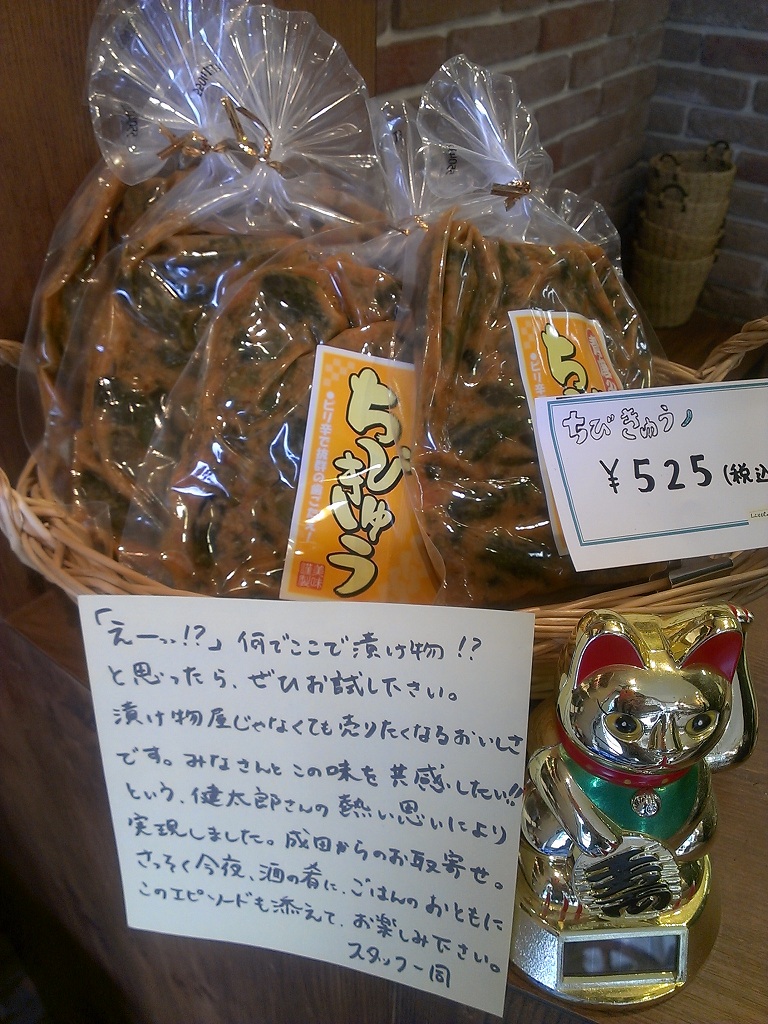 ちびきゅう
●ピリ辛で抜群の歯ごたえ!
美味
謹製
ちび
ちびきゅう
¥525(税込
「えーっ!?」何でここで漬け物!?
と思ったら、ぜひお試し下さい。
漬け物屋じゃなくても売りたくなるおいしさ
です。みなさんとこの味を共感したい!!
という、健太郎さんの熱い思いにより
実現しました。成田からのお取寄せ。
さっそく今夜、酒の肴に、ごはんのおともに
このエピソードも添えて、お楽しみ下さい。
スタッフ一同
寿